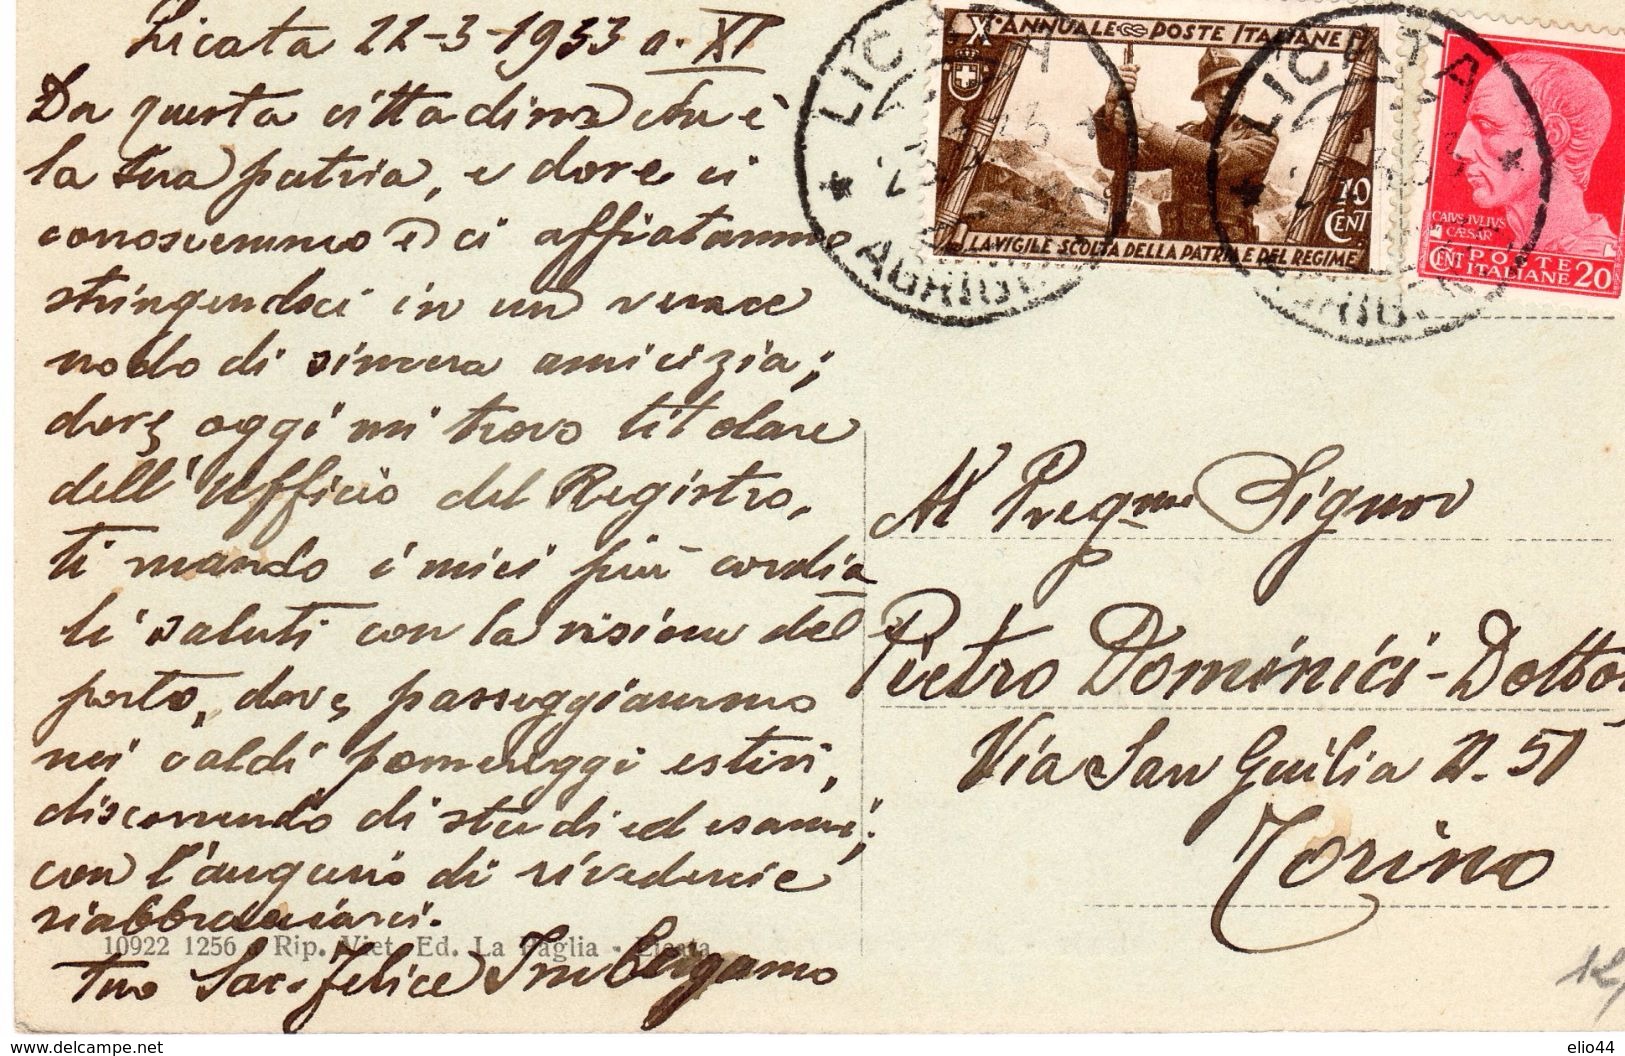 Licata 22-3-1933 a. XI
Da questa cittadina che è
la tua patria, e dove ci
conoscemmo e ci affiatammo
stringendoci in un verace
nodo di sincera amicizia;
dove oggi mi trovo titolare
dell'Ufficio del Registro,
ti mando i miei più cordia
li saluti con la visione del
porto, dove passeggiavamo
nei caldi pomeriggi estivi,
discorrendo di studi ed esami;
con l'augurio di rivederci e
riabbracciarci.
tuo Sac. Felice Imbergamo
10922 1256 - Rip. Viet. Ed. La Paglia - Licata
X° ANNUALE POSTE ITALIANE
10 CENT
LA VIGILE SCOLTA DELLA PATRIA E DEL REGIME
CAIVS IVLIVS
CÆSAR
POSTE
CENT ITALIANE 20
LICATA
LICATA
Al Pregmo Signor
Pietro Dominici - Dottor
Via San Guilia N. 51
Torino
12/
www.delcampe.net
elio44